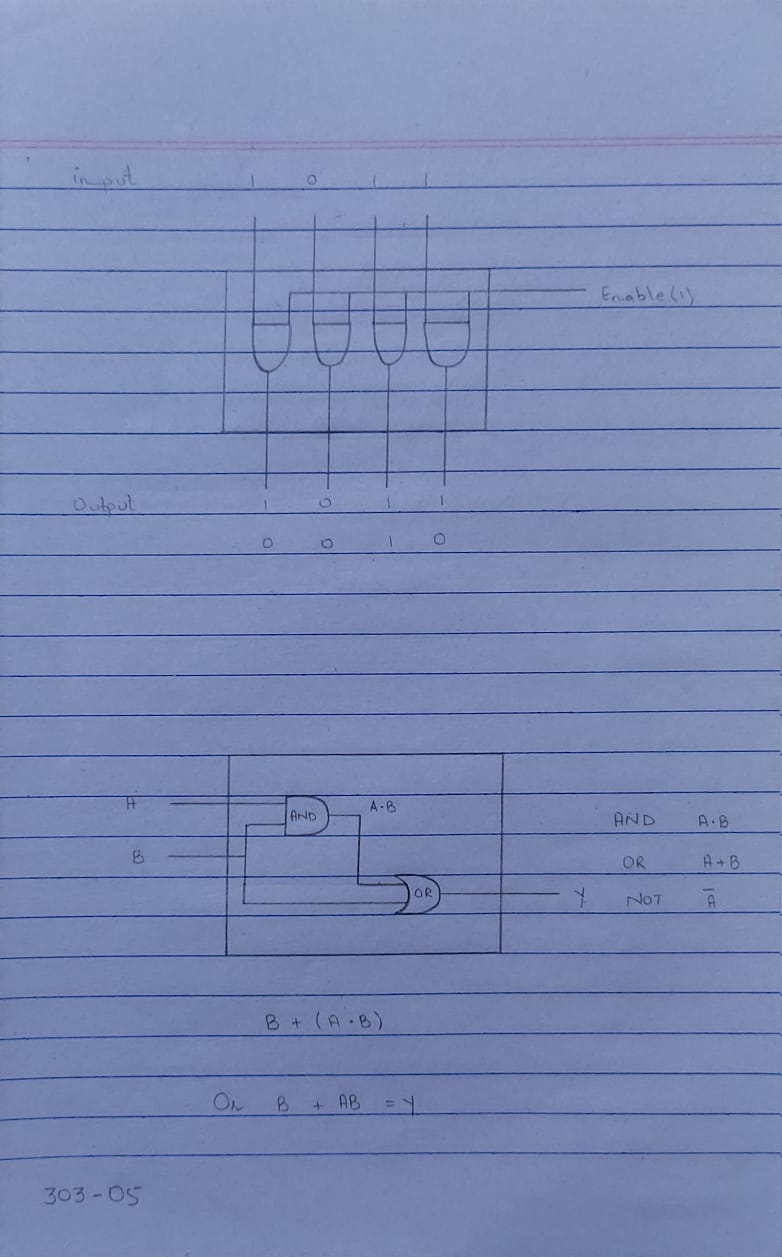 input 1 0 1 1
Enable(1)
Output 1 0 1 1
0 0 1 0
A AND A·B AND A·B
B OR A+B
OR Y NOT A̅
B + (A·B)
Or B + AB = Y
303-05